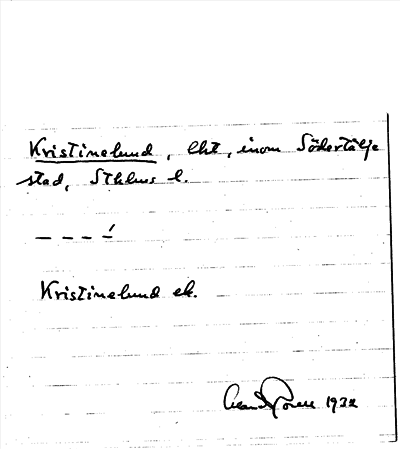 Kristinelund, lht, inom Södertälje
stad, Sthlms l.
– – – –́
Kristinelund ek.
1932